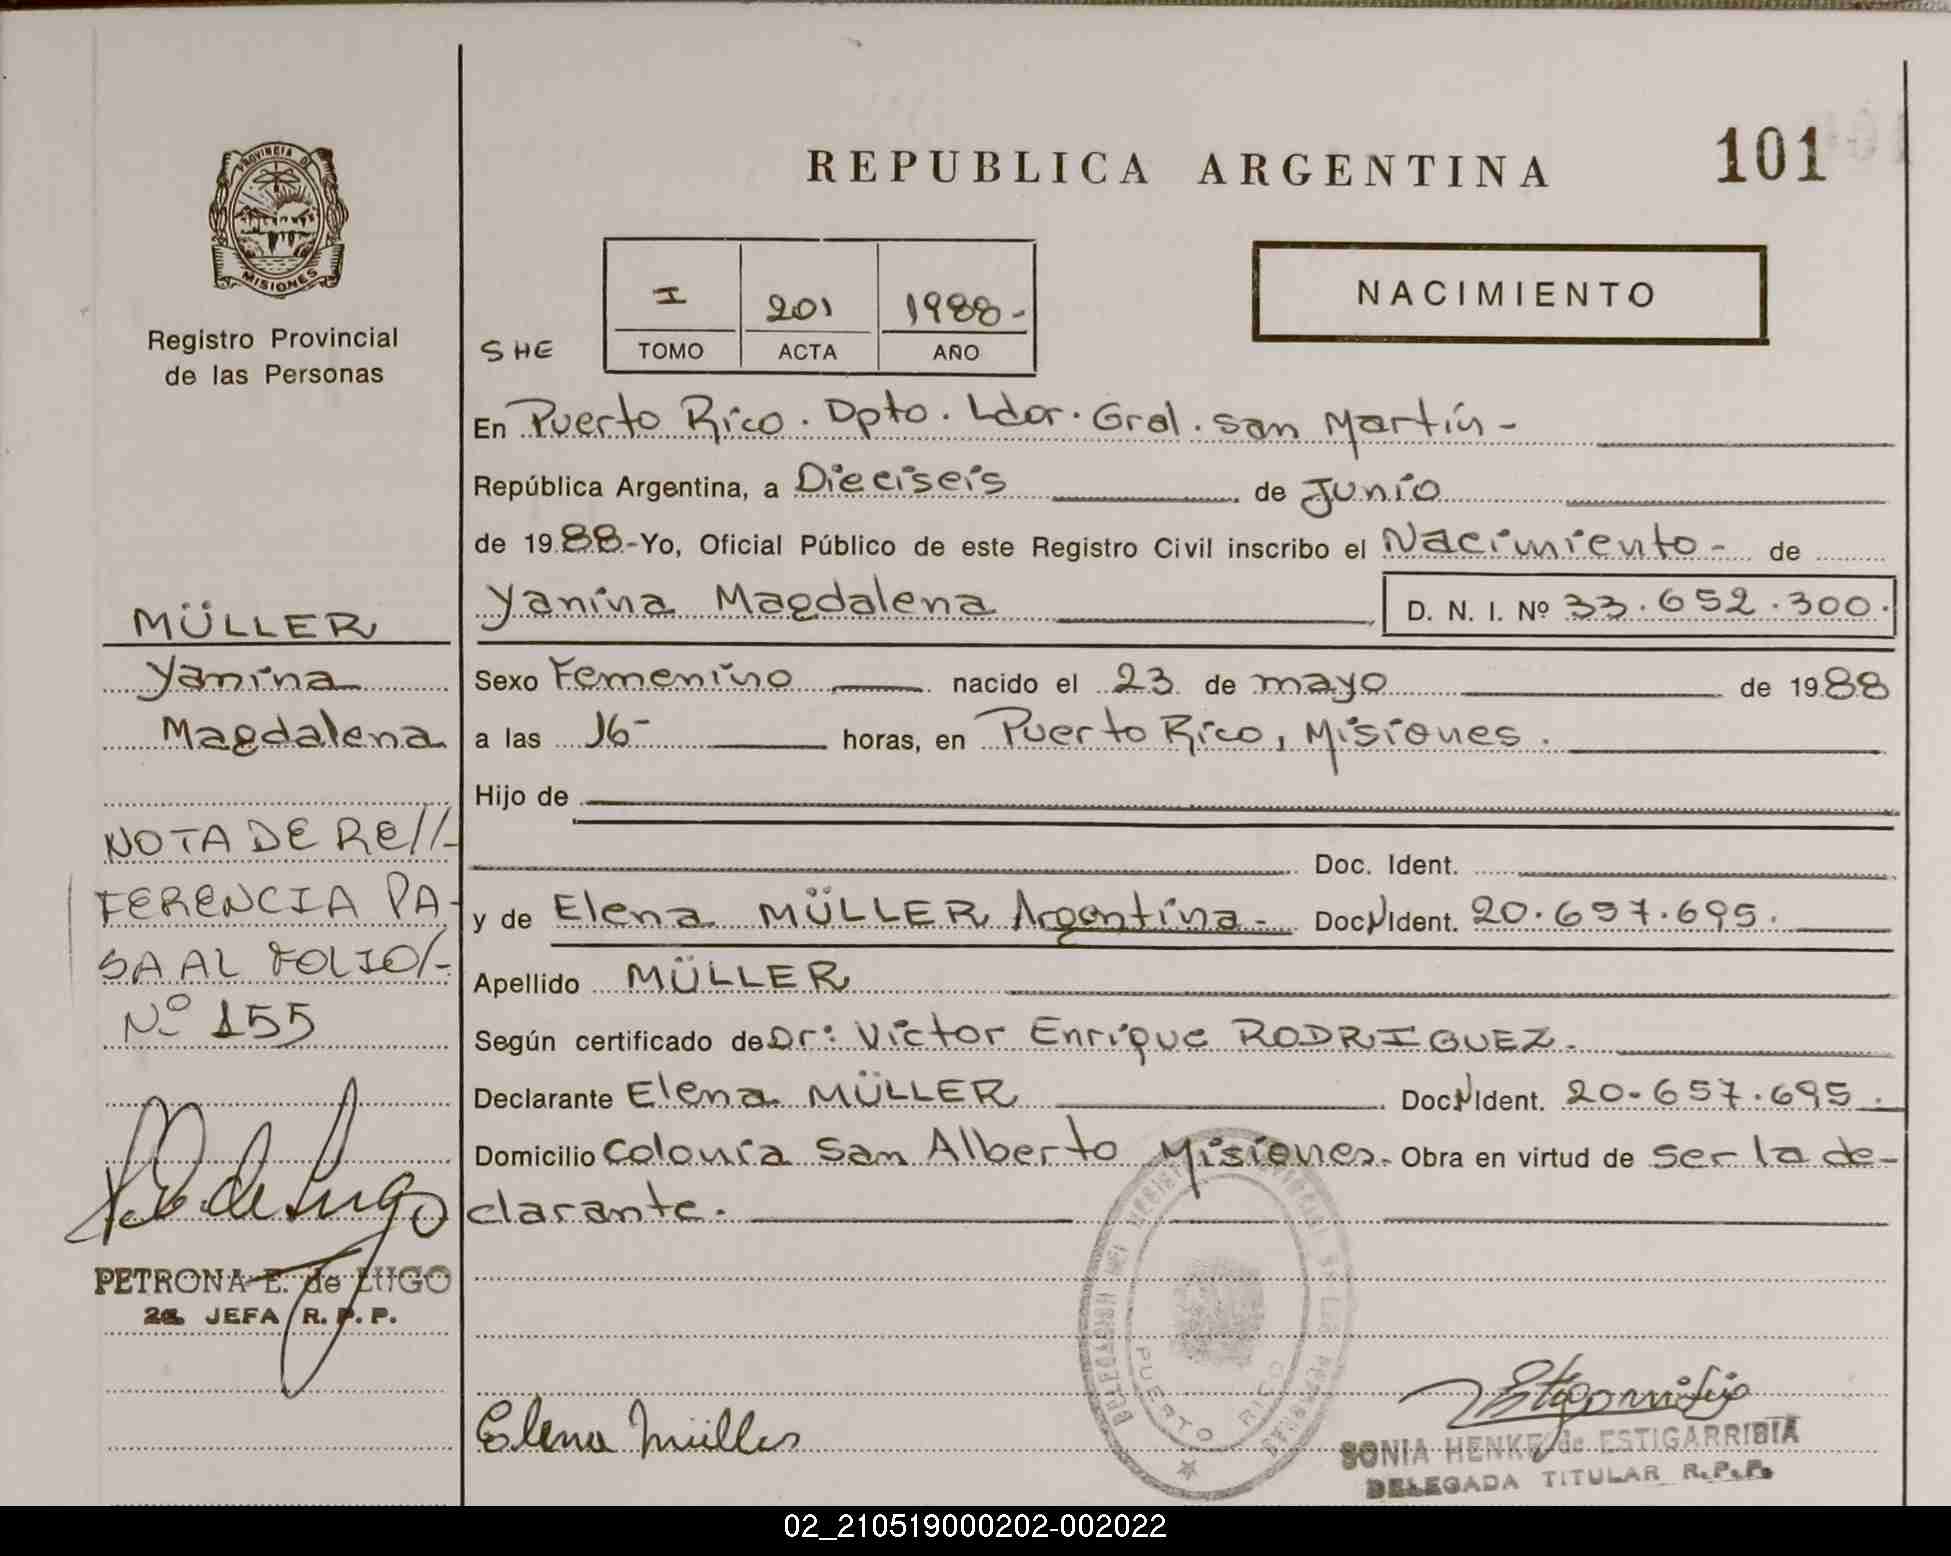 PROVINCIA DE
MISIONES
Registro Provincial
de las Personas
MÜLLER
Yanina
Magdalena
NOTA DE Re//-
FERENCIA PA-
SA AL FOLIO/-
Nº 155
P. E. de Lugo
PETRONA E. de LUGO
2a. JEFA R. P. P.
REPUBLICA ARGENTINA
101
SHE
I 201 1988-
TOMO ACTA AÑO
NACIMIENTO
En Puerto Rico. Dpto. Ldor. Gral. San Martín-
República Argentina, a Dieciseis de Junio
de 1988-Yo, Oficial Público de este Registro Civil inscribo el Nacimiento- de
Yanina Magdalena D. N. I. Nº 33.652.300.
Sexo Femenino nacido el 23 de mayo de 1988
a las 16- horas, en Puerto Rico, Misiones.
Hijo de
Doc. Ident.
y de Elena MÜLLER Argentina- Doc. Ident. 20.657.695.
Apellido MÜLLER
Según certificado de Dr: Victor Enrique RODRIGUEZ.
Declarante Elena MÜLLER Doc. Ident. 20.657.695.
Domicilio Colonia San Alberto Misiones. Obra en virtud de ser la de-
clarante.
DELEGACION DEL REGISTRO PROVINCIAL DE LAS PERSONAS
PUERTO RICO
Elena Müller
SONIA HENKE de ESTIGARRIBIA
DELEGADA TITULAR R.P.P.
02_210519000202-002022